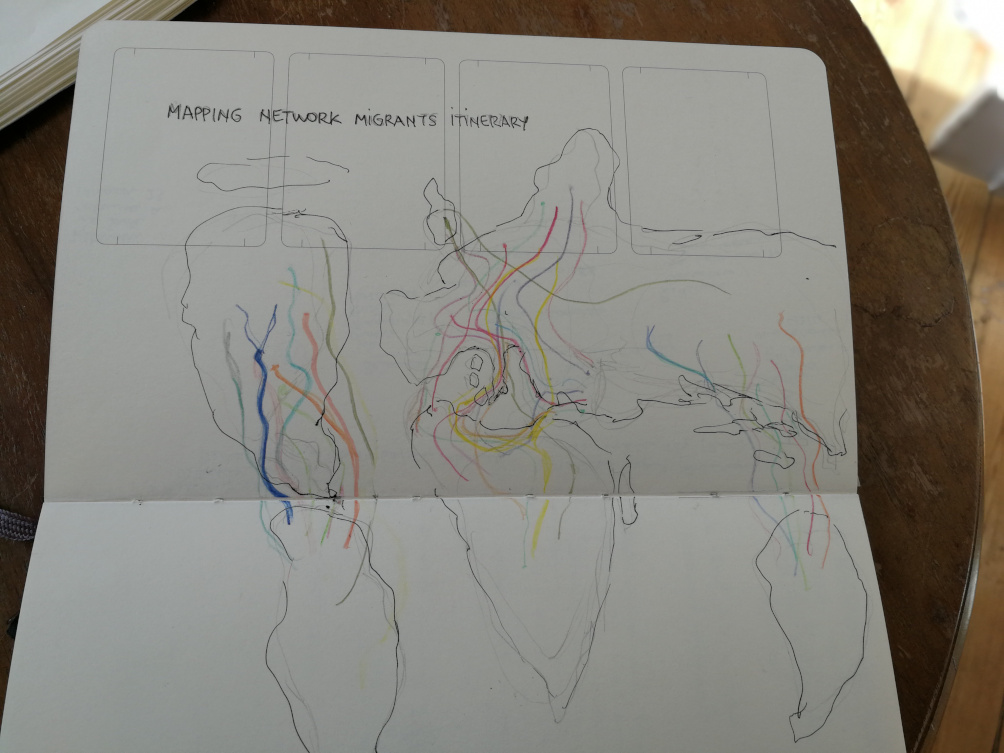 MAPPING NETWORK MIGRANTS ITINERARY